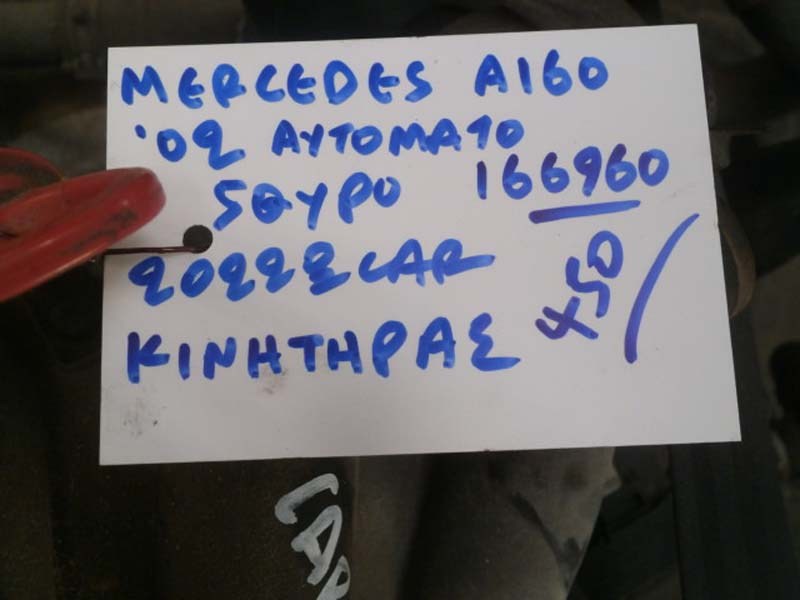 MERCEDES A160
'02 ΑΥΤΟΜΑΤΟ
5ΘΥΡΟ 166960
20222CAR
ΚΙΝΗΤΗΡΑΣ
450/